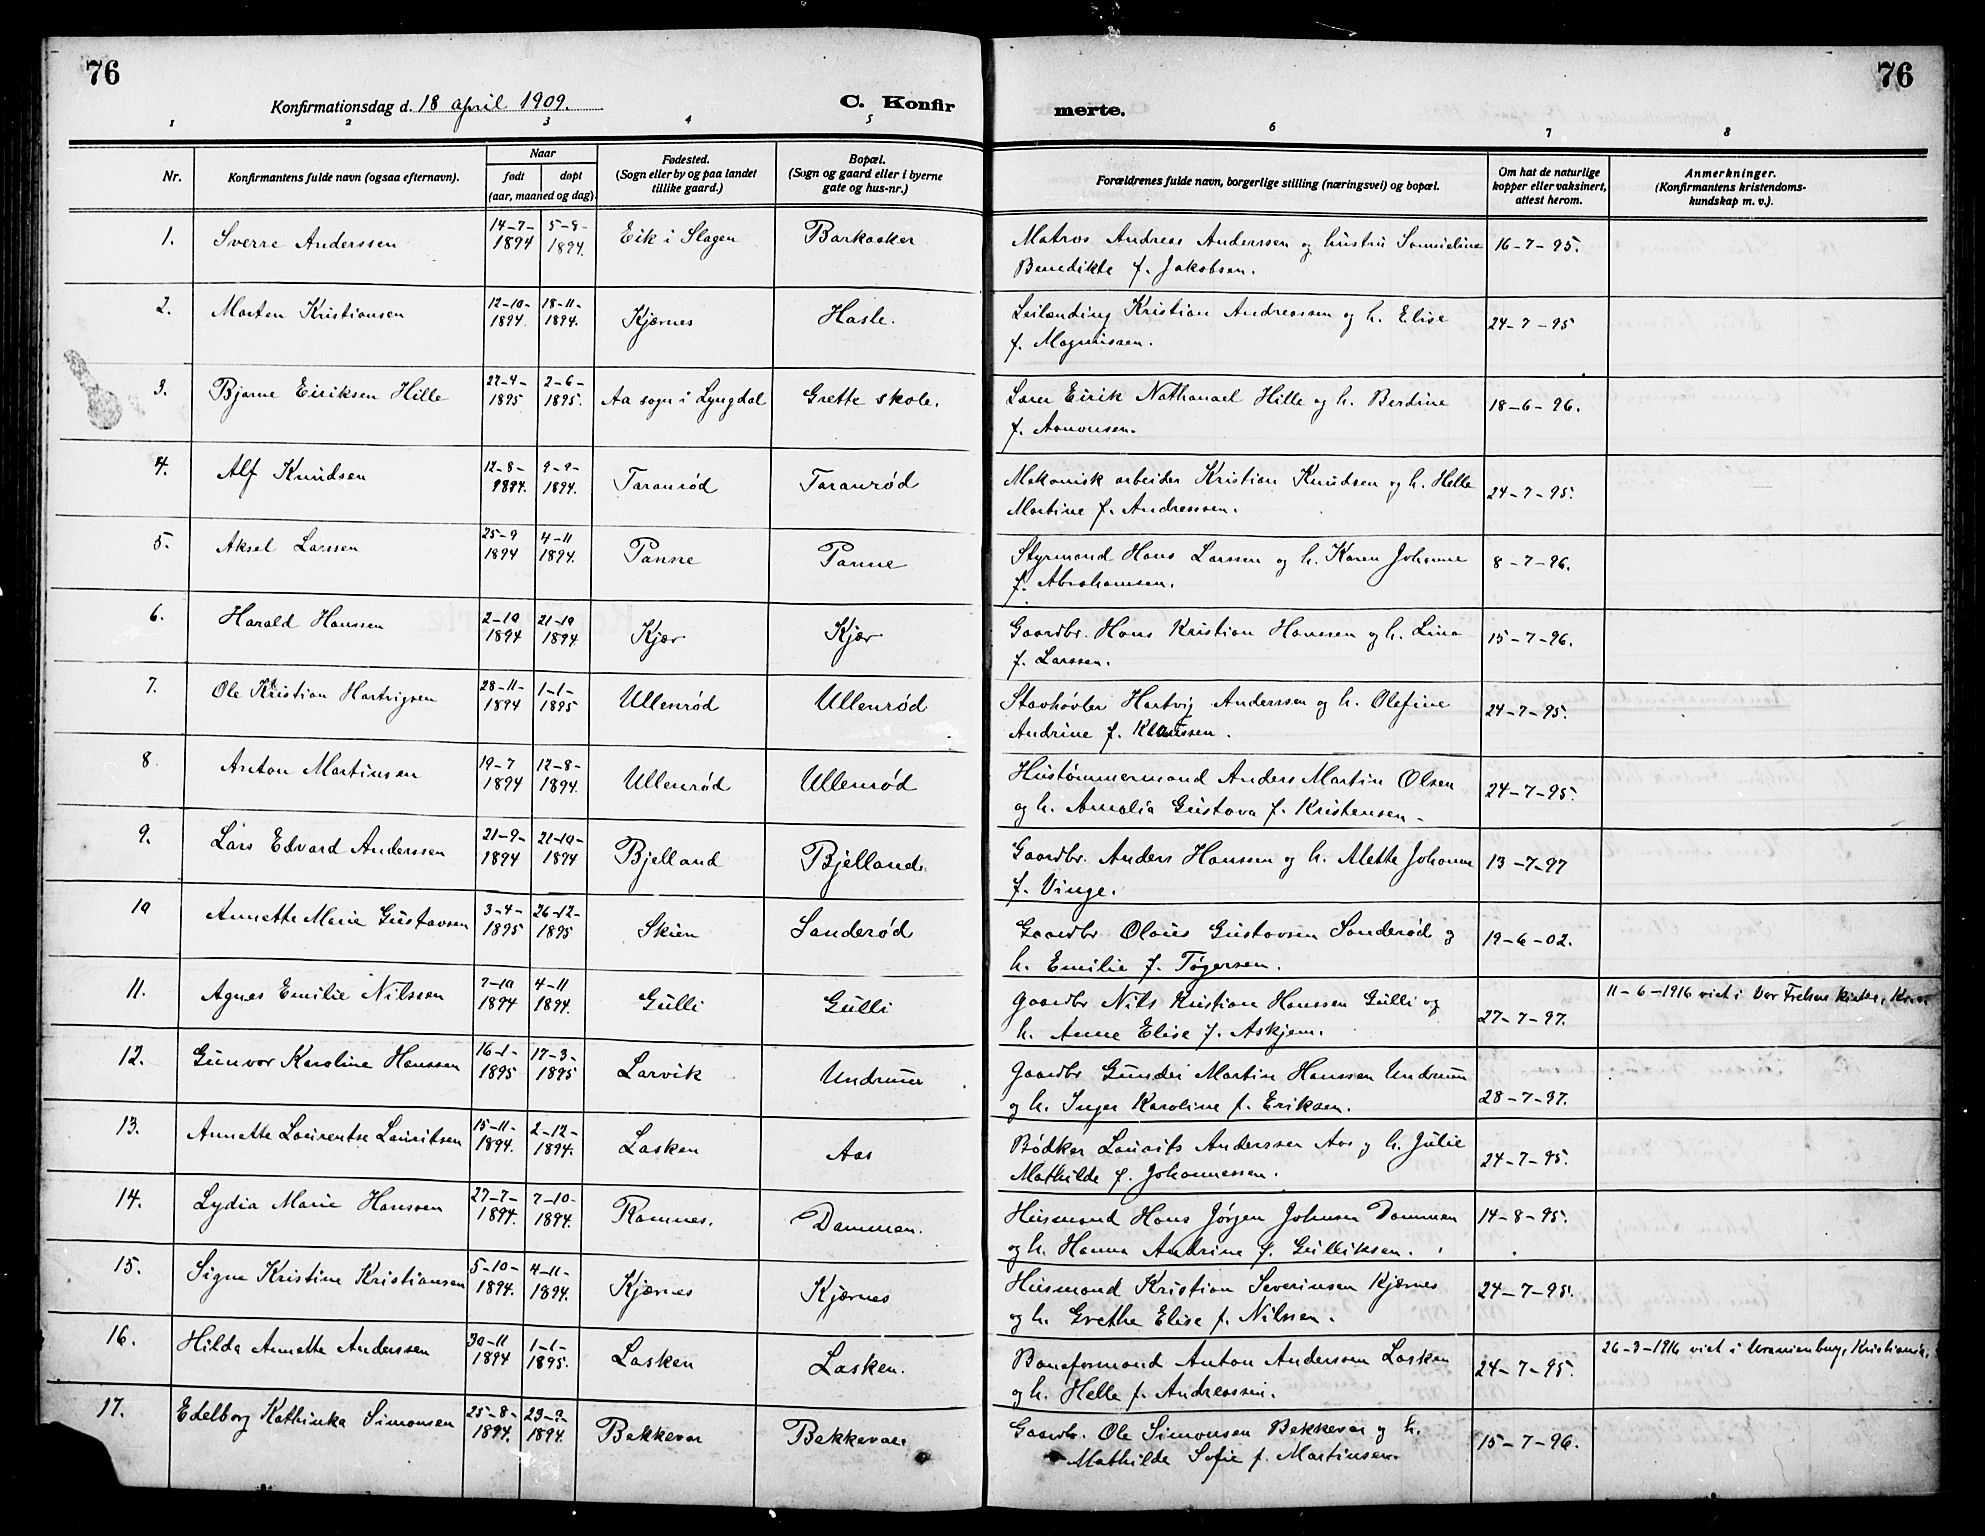 76
76
Konfirmationsdag d. 18 april 1909.
C. Konfir
merte.
1 2 3 4 5 6 7 8
Nr.
Konfirmantens fulde navn (ogsaa efternavn).
Naar
født døpt
(aar, maaned og dag).
Fødested.
(Sogn eller by og paa landet
tillike gaard.)
Bopæl.
(Sogn og gaard eller i byerne
gate og hus-nr.)
Forældrenes fulde navn, borgerlige stilling (næringsvei) og bopæl.
Om hat de naturlige
kopper eller vaksinert,
attest herom.
Anmerkninger.
(Konfirmantens kristendoms-
kundskap m. v.).
1. Sverre Anderssen 14-7- 1894 5-9- 1894. Eik i Slagen Barkaaker Matros Andreas Anderssen og hustru
Benedikte f. Jakobsen. 16-7-95.
2. Morten Kristiansen 12-10- 1894. 18-11- 1894. Kjærnes Hasle. Leilending Kristian Andreassen og h. Elise
f. Magnussen. 24-7-95
3. Bjarne Eiriksen Hille 27-4- 1895 2-6- 1895. Aa sogn i Lyngdal Grette skole. Lærer Eirik Nathanael Hille og h. Berdine
f. Aanonsen. 18-6-96.
4. Alf Knudsen 12-8- 1894. 9-9- 1894. Taranrød Taranrød Mekanisk arbeider Kristian Knudsen og h. Helle
Martine f. Andreassen. 24-7-95.
5. Aksel Larssen 25-9 1894 4-11 1894. Panne Panne Styrmand Hans Larssen og h. Karen Johanne
f. Abrahamsen. 8-7-96.
6. Harald Hanssen 2-10 1894 21-10 1894. Kjær Kjær Gaardbr. Hans Kristian Hanssen og h. Lina
f. Larssen. 15-7-96.
7. Ole Kristian Hartvigsen 28-11- 1894 1-1- 1895 Ullenrød Ullenrød Stavhøvler Hartvig Anderssen og h. Olefine
Andrine f. Klaussen. 24-7-95.
8. Anton Martinsen 19-7 1894 12-8- 1894. Ullenrød Ullenrød Hustømmermand Anders Martin Olsen
og h. Amalia Gustava f. Kristensen. 24-7-95.
9. Lars Edvard Anderssen 21-9- 1894 21-10- 1894 Bjelland Bjelland. Gaardbr. Anders Hanssen og h. Mette Johanne
f. Vinge. 13-7-97
10 Annette Marie Gustavsen 3-4- 1895 26-12- 1895 Skien Sanderød Gaardbr Olaus Gustavsen Sanderød og
h. Emilie f. Tøgersen. 19-6-02.
11. Agnes Emilie Nilssen 7-10 1894 4-11 1894. Gulli Gulli Gaardbr Nils Kristian Hanssen Gulli og
h. Anne Elise f. Askjem. 27-7-97. 11-6-1916 viet i Vor Frelsers kirke,
12. Gunvor Karoline Hanssen 16-1- 1895 17-3- 1895 Larvik Undrum Gaardbr Gunder Martin Hanssen Undrum
og h. Inger Karoline f. Eriksen. 28-7-97.
13. Annette Laurentse Lauritsen 15-11- 1894. 2-12- 1894. Lasken Aas Bødker Laurits Anderssen Aas og h. Julie
Mathilde f. Johannessen. 24-7-95.
14. Lydia Marie Hanssen 27-7- 1894. 7-10- 1894. Ramnes. Dammen. Husmand Hans Jørgen Johnsen Dammen
og h. Hanna Andrine f. Gulliksen. 14-8-95.
15. Signe Kristine Kristiansen 5-10- 1894. 4-11- 1894. Kjærnes Kjærnes Husmand Kristian Severinsen Kjærnes
og h. Grethe Elise f. Nilssen. 24-7-95.
16. Hilda Annette Anderssen 30-11 1894 1-1- 1895. Lasken Lasken. Baneformand Anton Anderssen Lasken
og h. Helle f. Andreassen. 24-7-95. 26-3-1916 viet i Uranienborg, Kristiania.
17. Edelborg Kathinka Simonsen 25-8- 1894. 23-9- 1894. Bekkevar Bekkevar Gaardbr. Ole Simonsen Bekkevar og h.
Mathilde Sofie f. Martinsen. 15-7-96.